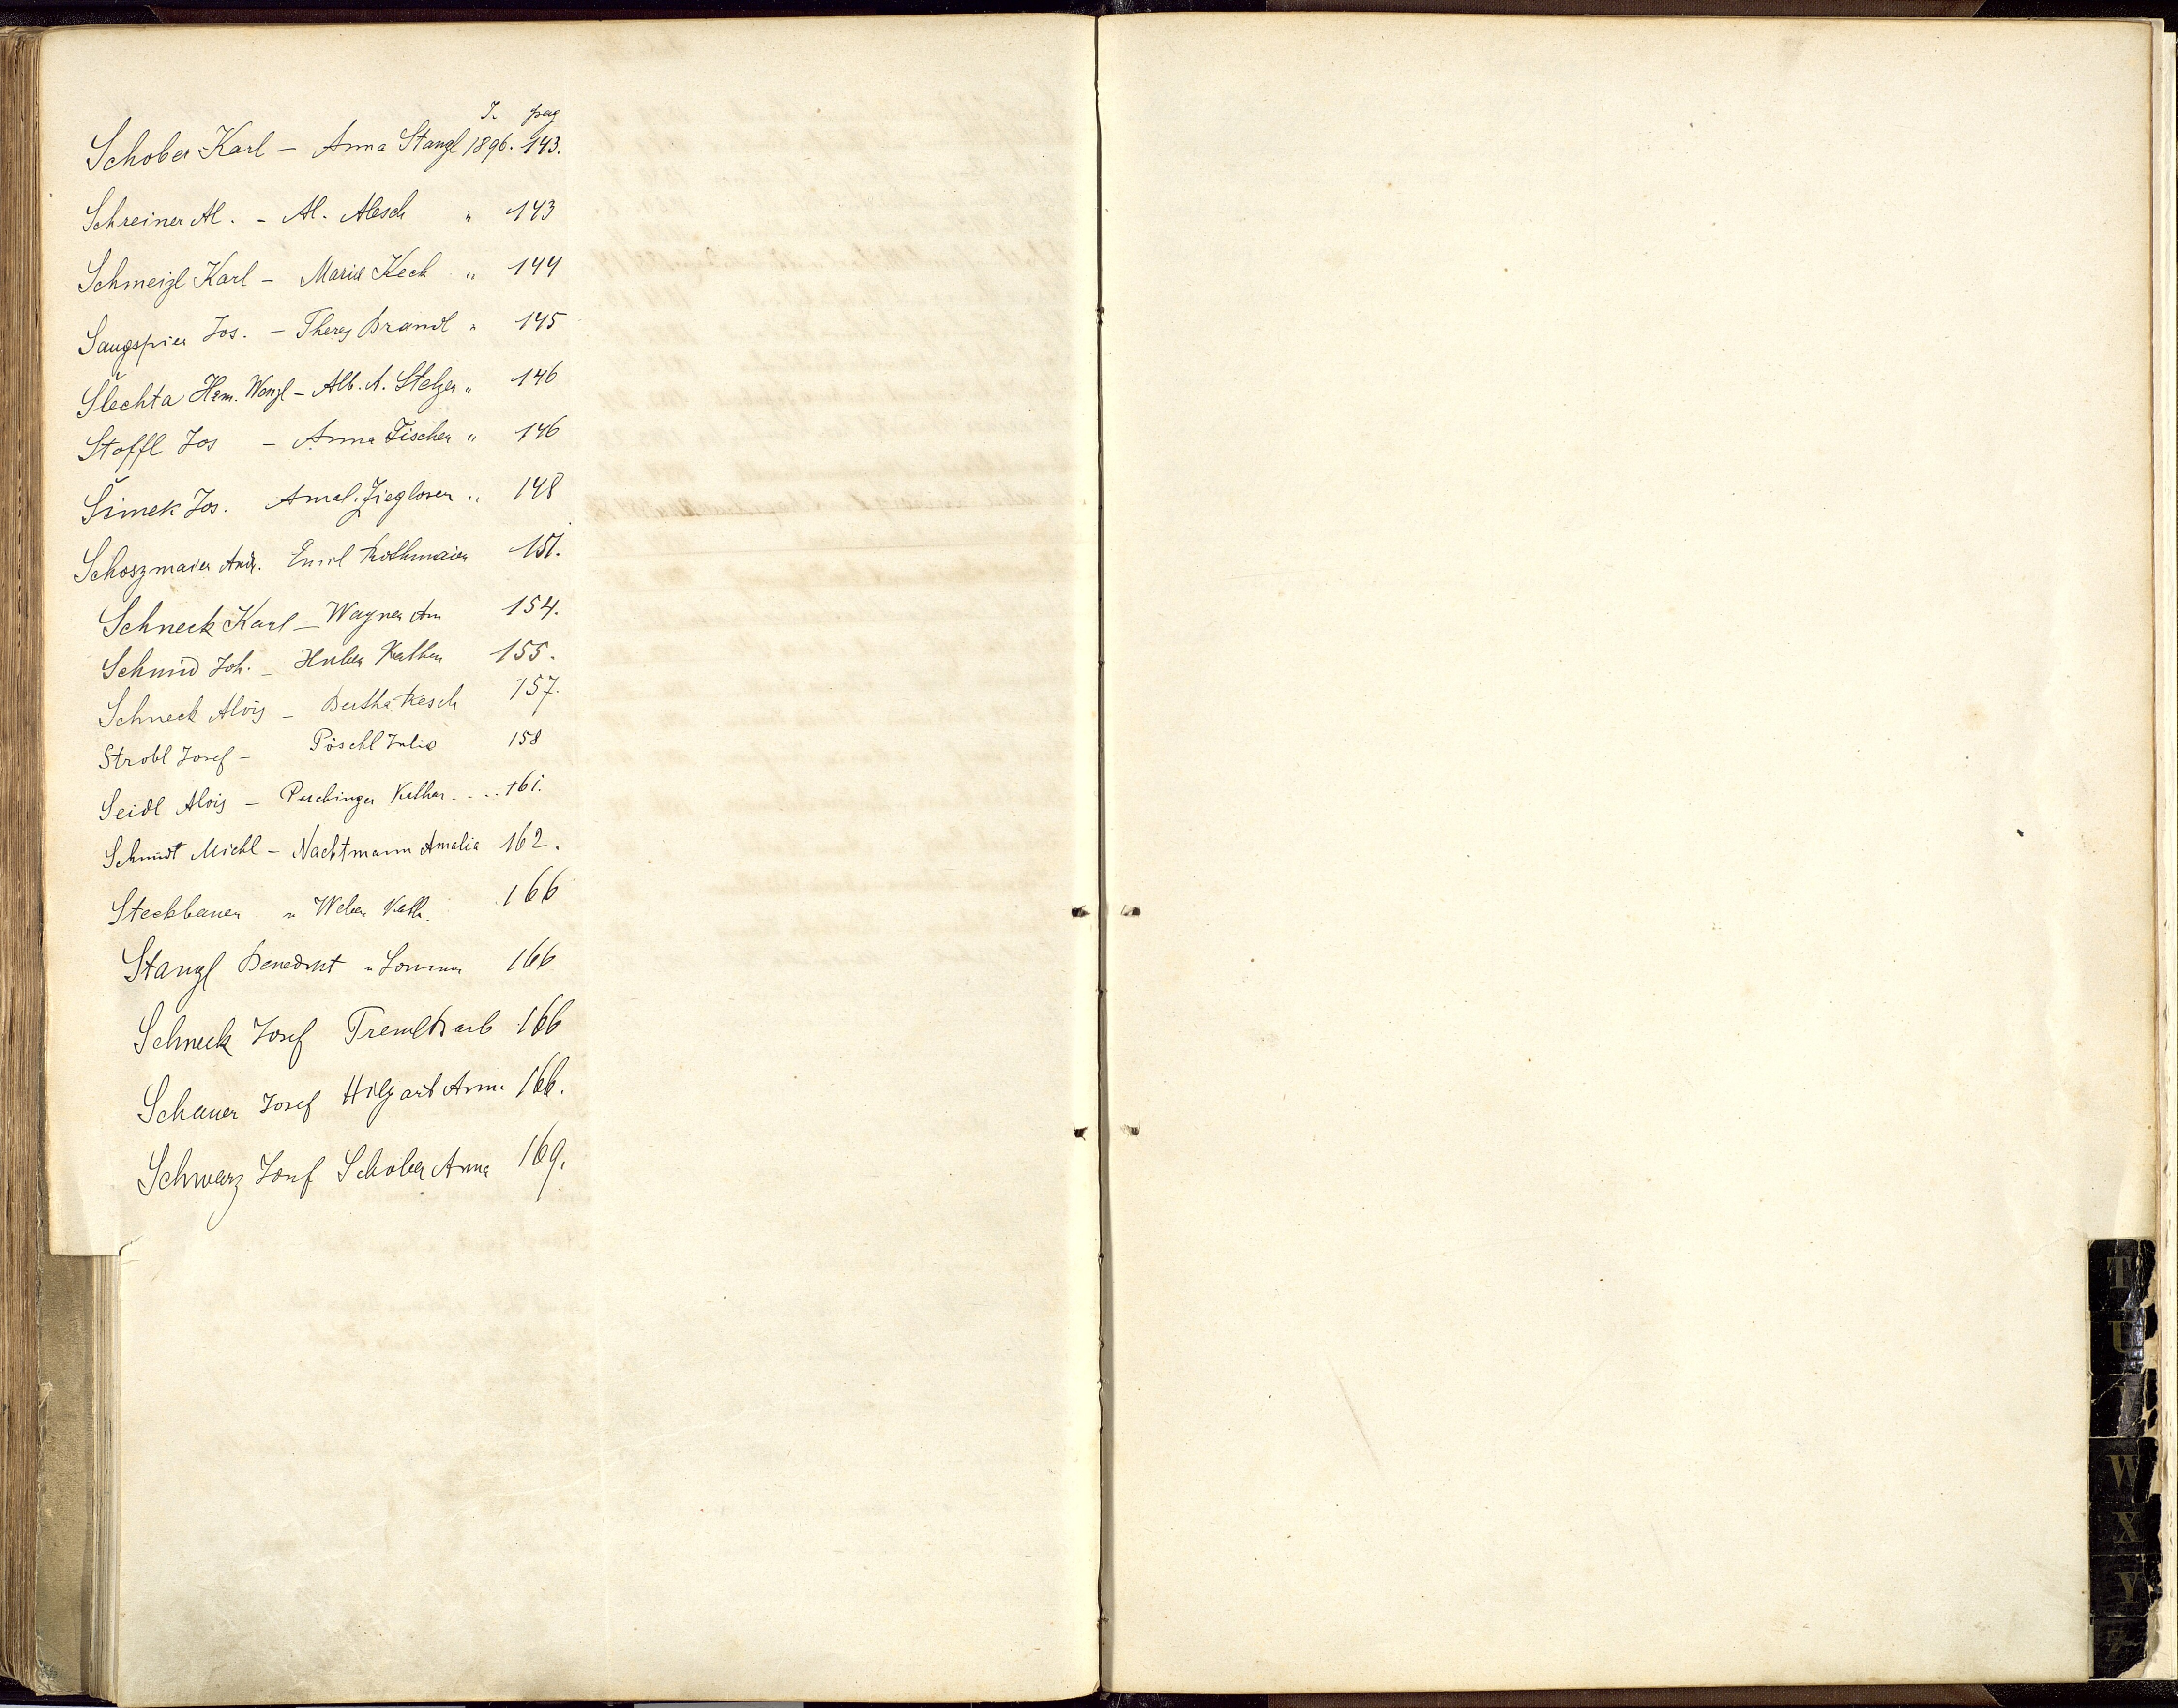 J. pag
Schober Karl – Anna Stangl 1896. 143.
Schreiner Al. – Al. Alesch " 143
Schmeizl Karl – Maria Keck " 144
Saugspier Jos. – Theres Brandl " 145
Šlechta Hem. Wenzl – Alb. A. Stelzer " 146
Stoffl Jos – Anna Fischer " 146
Šimek Jos. Amal. Zieglover " 148
Schoszmaier And. Emil Rothmaier 151.
Schneck Karl – Wagner An 154.
Schmid Joh. – Huber Kathar 155.
Schneck Alois – Bertha Resch 157.
Strobl Josef – Pöschl Julia 158
Seidl Alois – Puchinger Kathar. ... 161.
Schmidt Michl – Nachtmann Amalia 162.
Steckbauer u Weber Kath. 166
Stangl Benedikt u 166
Schneck Josef Treml Barb 166
Schauer Josef Hilgart Anna 166.
Schwarz Josef Schober Anna 169.
T
U
W
X
Y
Z